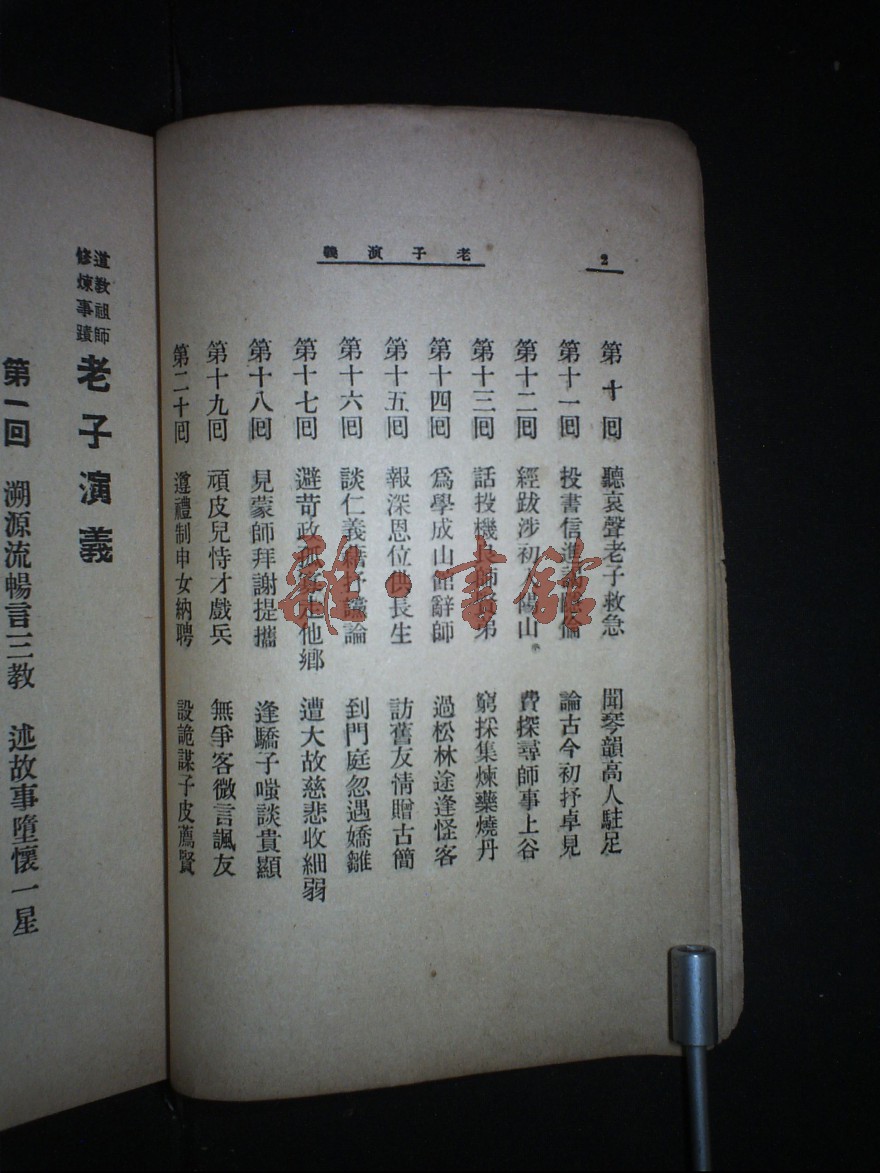 2
老子演義
第十回 聽哀聲老子救急 聞琴韻高人駐足
第十一回 投書信進隱倫 論古今初抒卓見
第十二回 經跋涉初入陽山 費探尋師事上谷
第十三回 話投機師賢弟 窮採集煉藥燒丹
第十四回 爲學成山館辭師 過松林途逢怪客
第十五回 報深恩位供長生 訪舊友情贈古簡
第十六回 談仁義藉抒讜論 到門庭忽遇嬌雛
第十七回 避苛政孤走他鄉 遭大故慈悲收細弱
第十八回 見蒙師拜謝提攜 逢驕子嗤談貴顯
第十九回 頑皮兒恃才戲兵 無爭客微言諷友
第二十回 遵禮制申女納聘 設詭謀子皮薦賢
道教祖師
修煉事蹟
老子演義
第一回 溯源流暢言三教 述故事墮懷一星
雜·書館